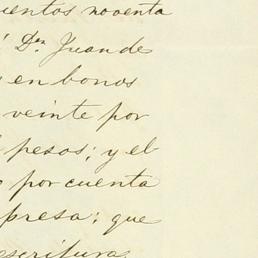 uentos noventa
Dn. Juan de
en bonos
veinte por
pesos; y el
por cuenta
presa; que
escritura